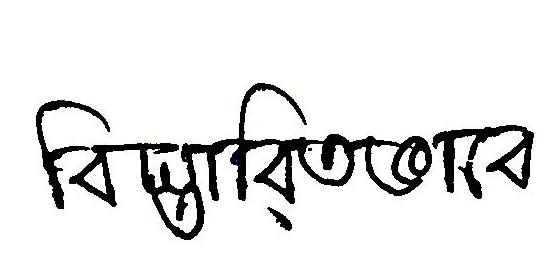 বিস্তারিতভাবে